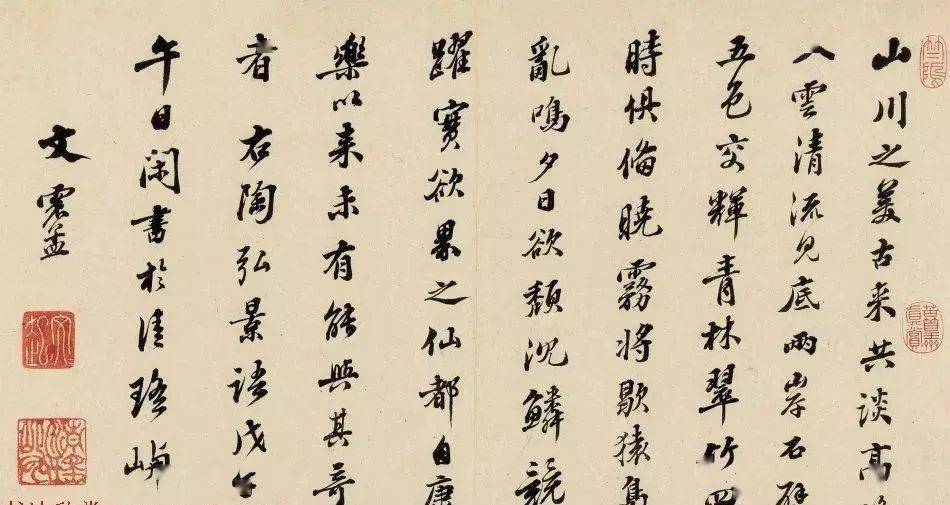 山川之美古来共談高
入雲清流見底兩岸石壁
五色交輝青林翠竹四
時俱偹曉霧將歇猿鳥
亂鳴夕日欲頹沉鱗競
躍實欲界之仙都自康
樂以来未有能與其奇
者 右陶弘景語戊午
午日閑書於清瑤嶼
文震孟